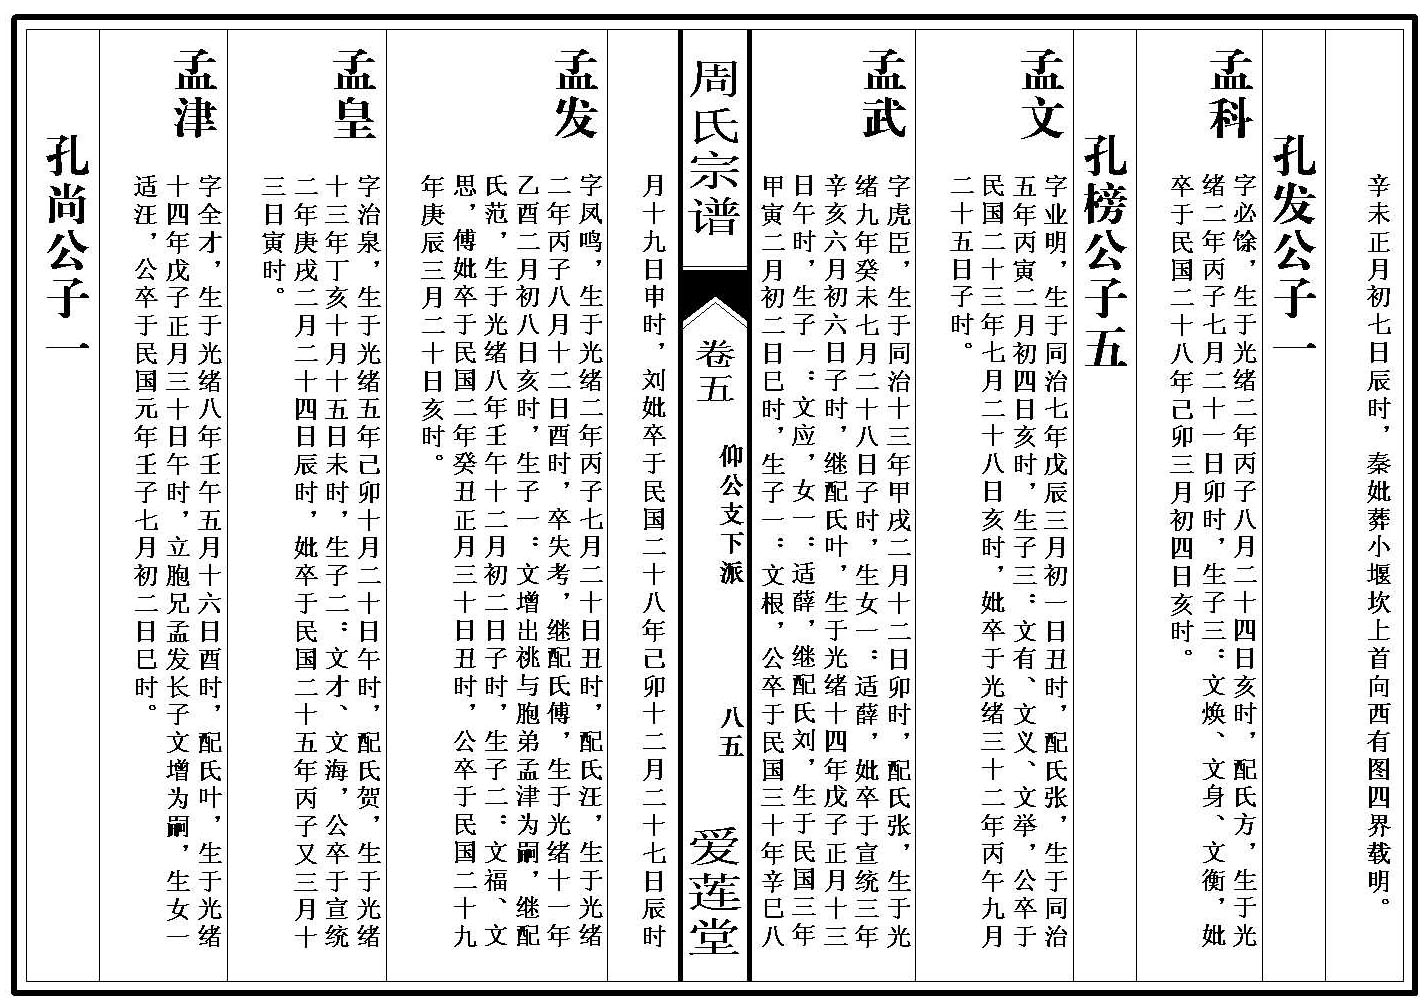 辛未正月初七日辰时，秦妣葬小堰坎上首向西有图四界载明。
孔发公子一
孟科
字必馀，生于光绪二年丙子八月二十四日亥时，配氏方，生于光
绪二年丙子七月二十一日卯时，生子三：文焕、文身、文衡，妣
卒于民国二十八年己卯三月初四日亥时。
孔榜公子五
孟文
字业明，生于同治七年戊辰三月初一日丑时，配氏张，生于同治
五年丙寅二月初四日亥时，生子三：文有、文义、文举，公卒于
民国二十三年七月二十八日亥时，妣卒于光绪三十二年丙午九月
二十五日子时。
孟武
字虎臣，生于同治十三年甲戌二月十二日卯时，配氏张，生于光
绪九年癸未七月二十八日子时，生女一：适薛，妣卒于宣统三年
辛亥六月初六日子时，继配氏叶，生于光绪十四年戊子正月十三
日午时，生子一：文应，女一：适薛，继配氏刘，生于民国三年
甲寅二月初二日巳时，生子一：文根，公卒于民国三十年辛巳八
周氏宗谱
卷五
仰公支下派
八五
爱莲堂
月十九日申时，刘妣卒于民国二十八年己卯十二月二十七日辰时
孟发
字凤鸣，生于光绪二年丙子七月二十日丑时，配氏汪，生于光绪
二年丙子八月十二日酉时，卒失考，继配氏傅，生于光绪十一年
乙酉二月初八日亥时，生子一：文增出祧与胞弟孟津为嗣，继配
氏范，生于光绪八年壬午十二月初二日子时，生子二：文福、文
思，傅妣卒于民国二年癸丑正月三十日丑时，公卒于民国二十九
年庚辰三月二十日亥时。
孟皇
字治泉，生于光绪五年己卯十月二十日午时，配氏贺，生于光绪
十三年丁亥十月十五日未时，生子二：文才、文海，公卒于宣统
二年庚戌二月二十四日辰时，妣卒于民国二十五年丙子又三月十
三日寅时。
孟津
字全才，生于光绪八年壬午五月十六日酉时，配氏叶，生于光绪
十四年戊子正月三十日午时，立胞兄孟发长子文增为嗣，生女一
适汪，公卒于民国元年壬子七月初二日巳时。
孔尚公子一